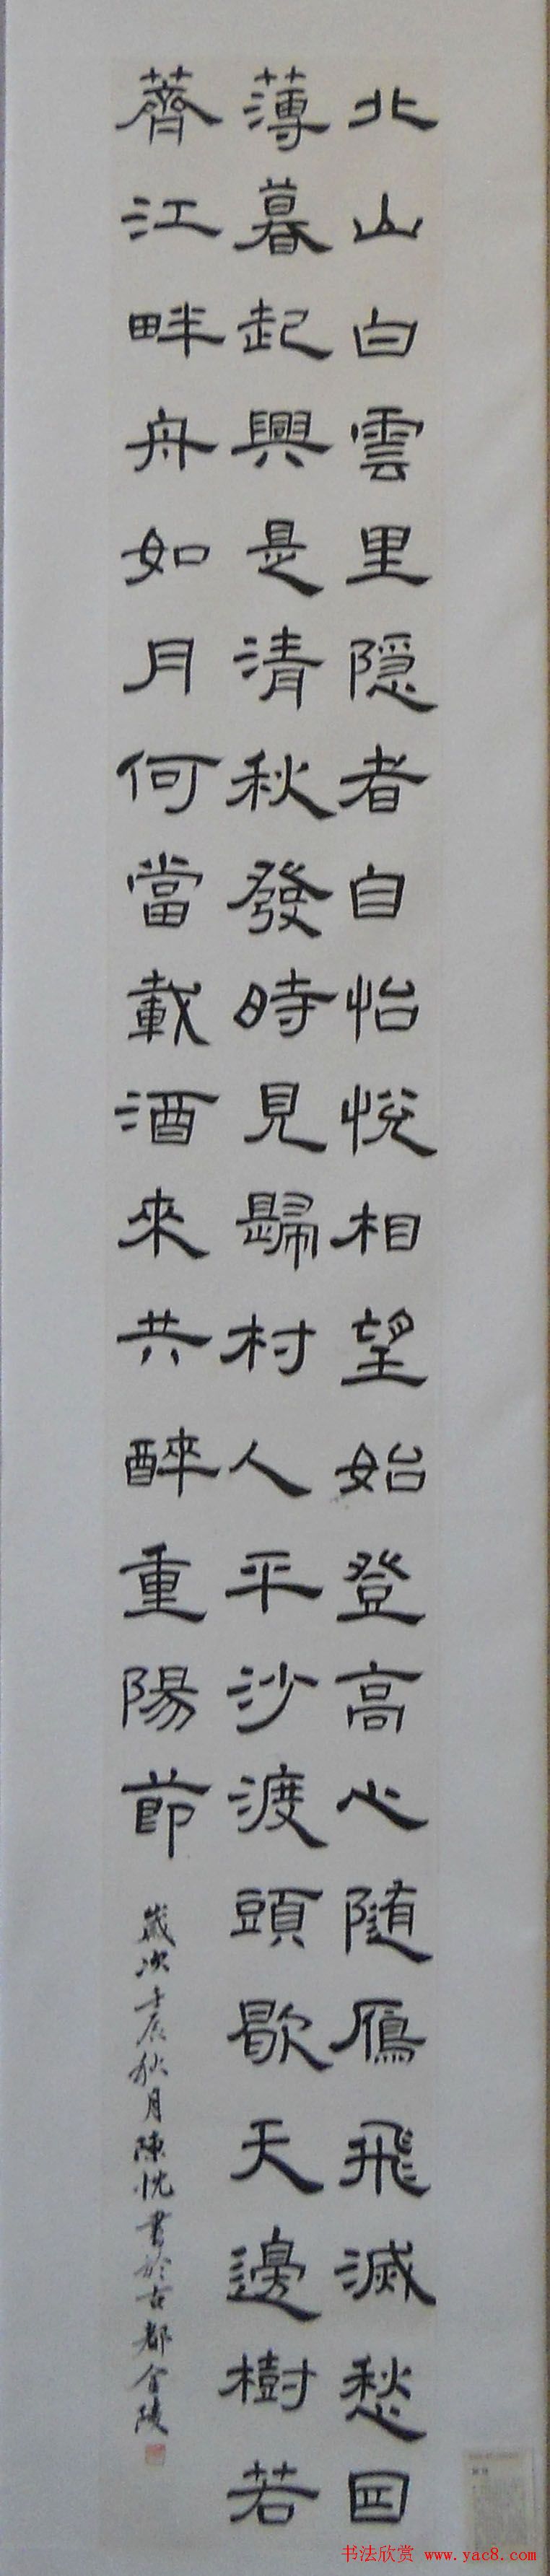 北山白雲里隐者自怡悦相望始登高心随鴈飛滅愁因
薄暮起興是清秋發時見歸村人平沙渡頭歇天邊樹若
薺江畔舟如月何當載酒來共醉重陽節
歲次壬辰秋月陳忱書於古都金陵
书法欣赏 www.yac8.com